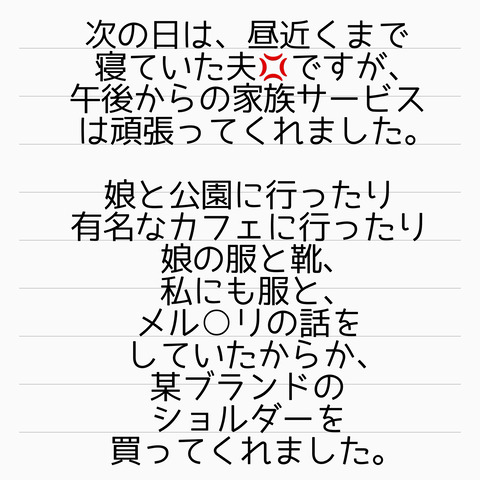 次の日は、昼近くまで
寝ていた夫💢ですが、
午後からの家族サービス
は頑張ってくれました。
娘と公園に行ったり
有名なカフェに行ったり
娘の服と靴、
私にも服と、
メル○リの話を
していたからか、
某ブランドの
ショルダーを
買ってくれました。